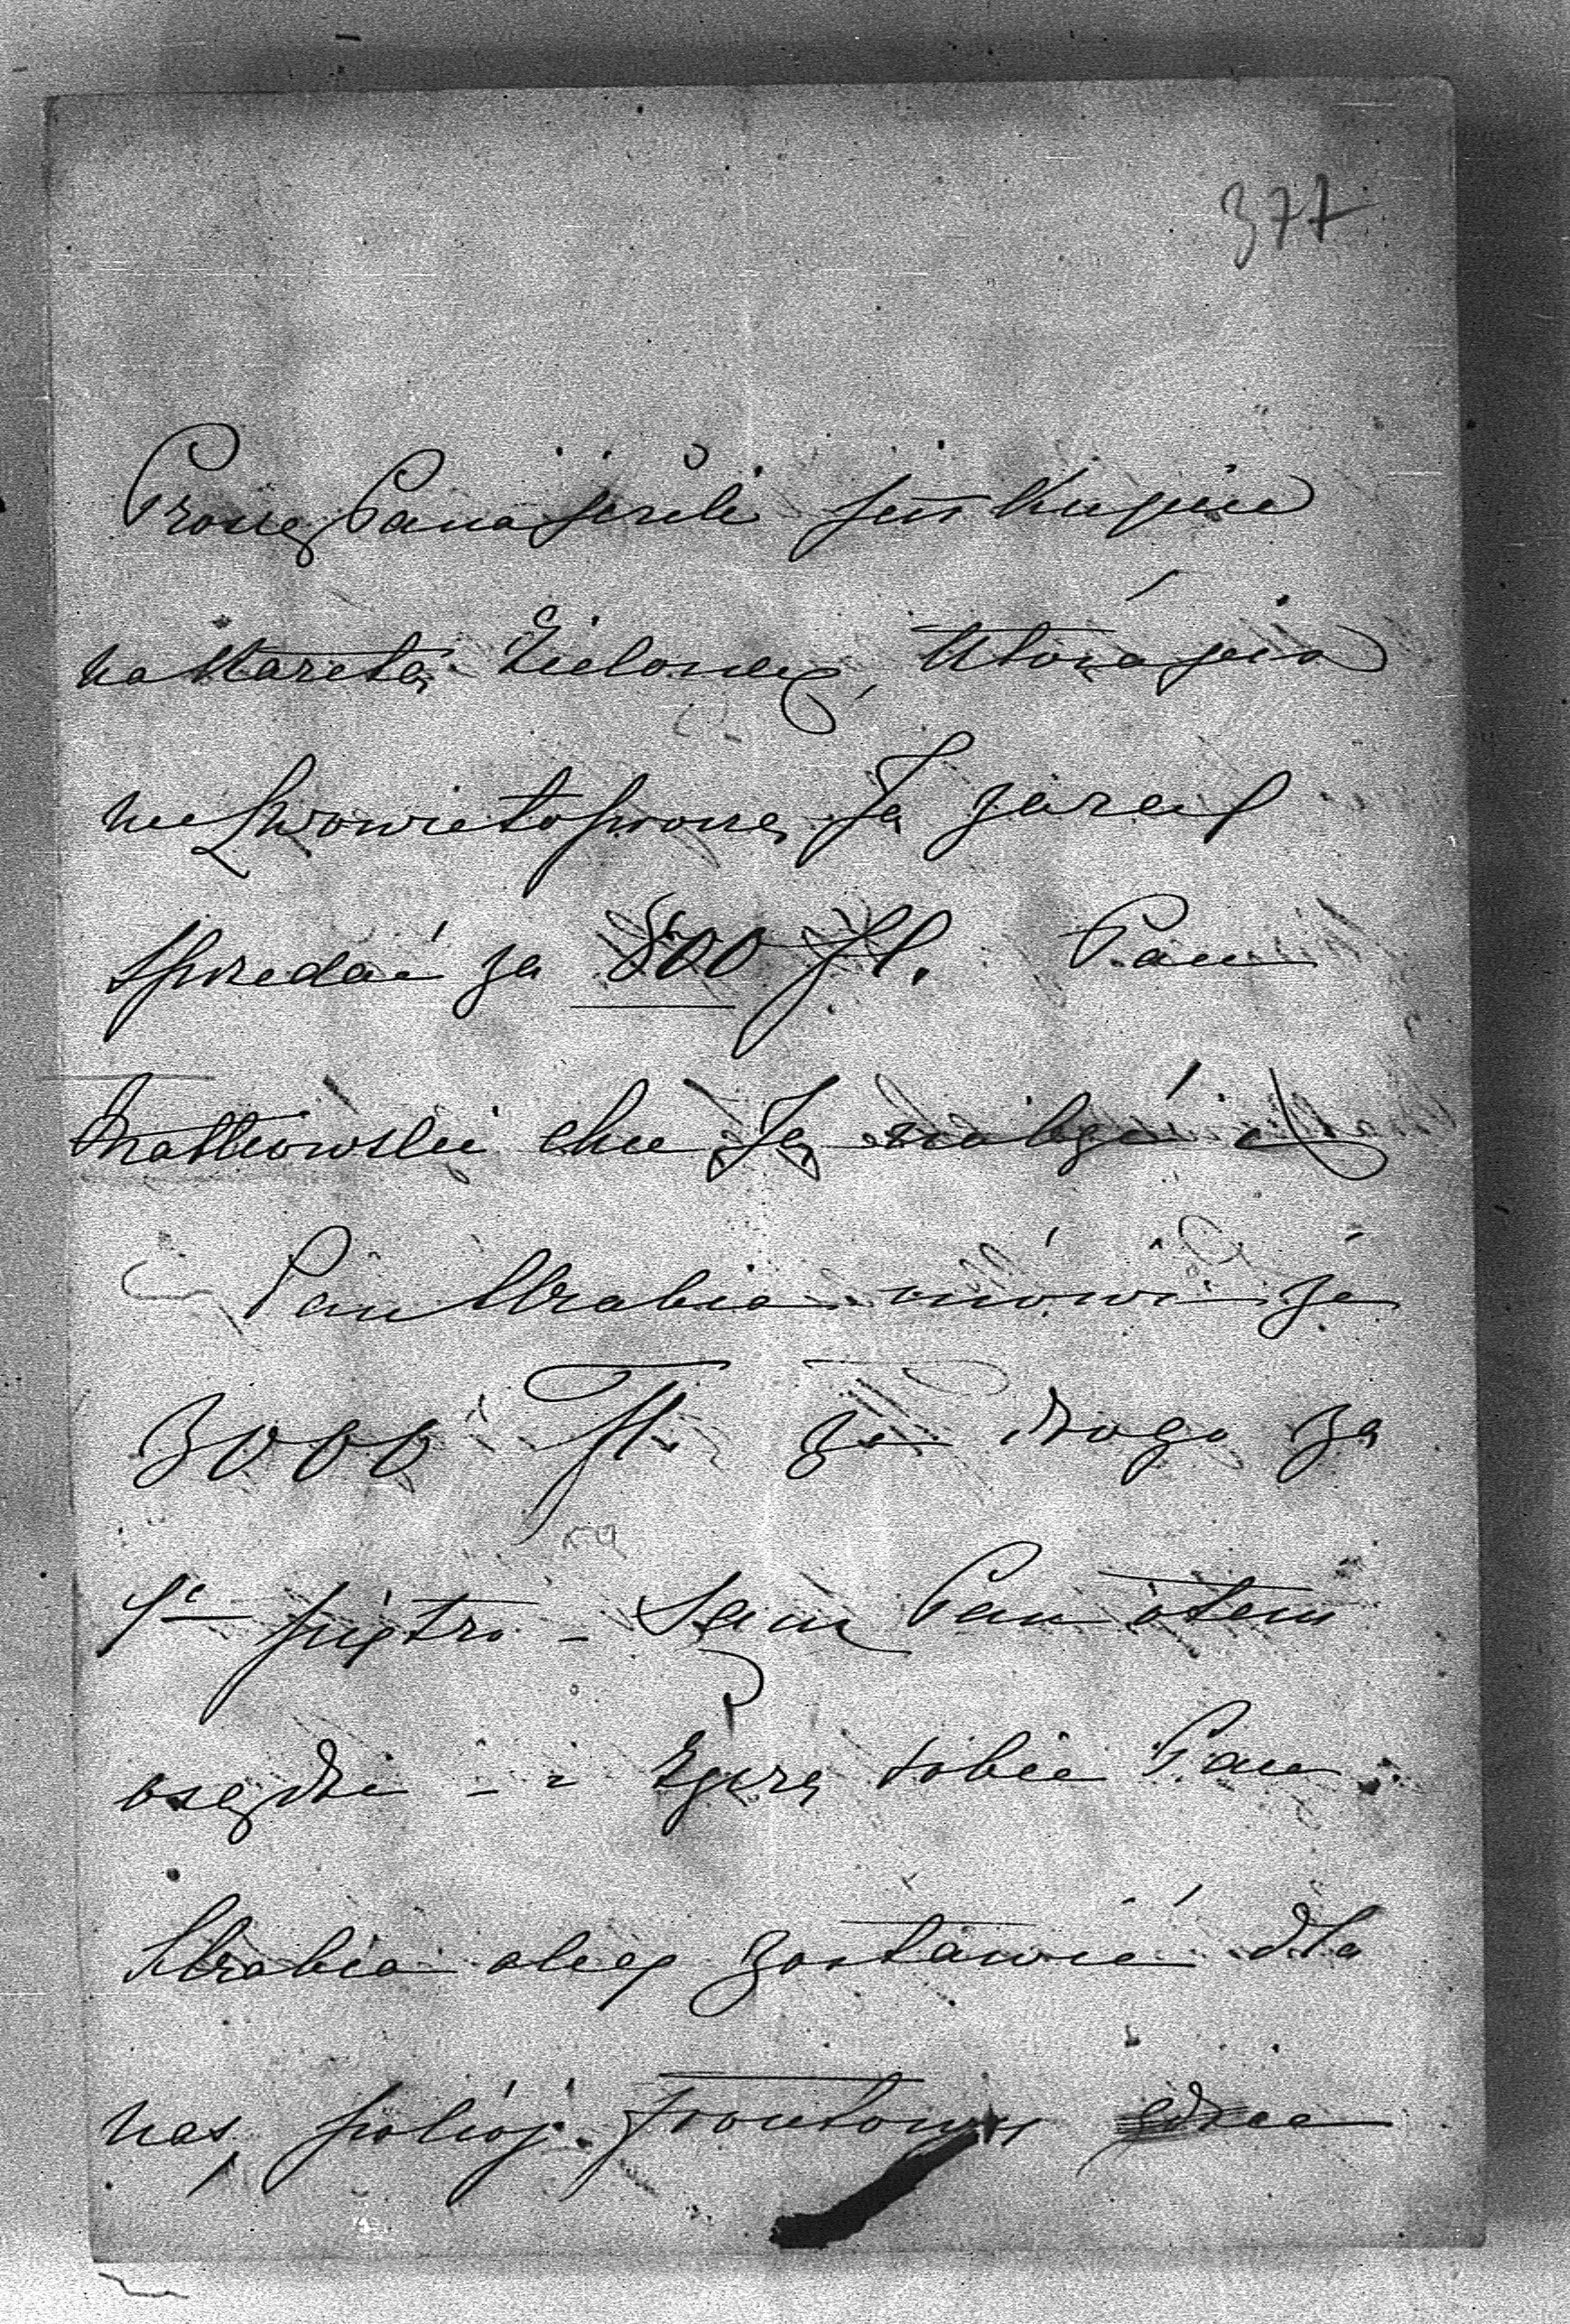 377
Proszę Pana jeżeli jest kupiec
na Karetę Zieloną, która jest
we Lwowie to proszę Ją zaraz
sprzedać za 800 fl. Pan
Matkowski chce Ją nabyć
Pan Hrabia mówi że
3000 Fl. za drogo za
1e piętro - Sam Pan o tem
osądzi - i życzą sobie Pan
Hrabia ażeby zostawić dla
nas, pokój frontowy